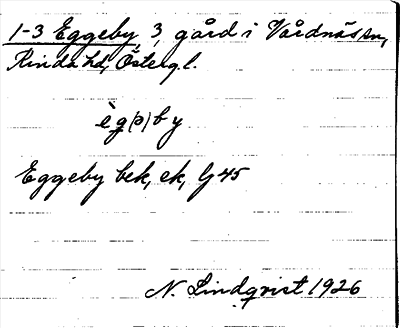 1-3 Eggeby, 3 gård i Vårdnäs sn,
Kinda hd, Östergl.
ègₑ(ə)by
Eggeby bek, ek, G 45
N. Lindqvist 1926